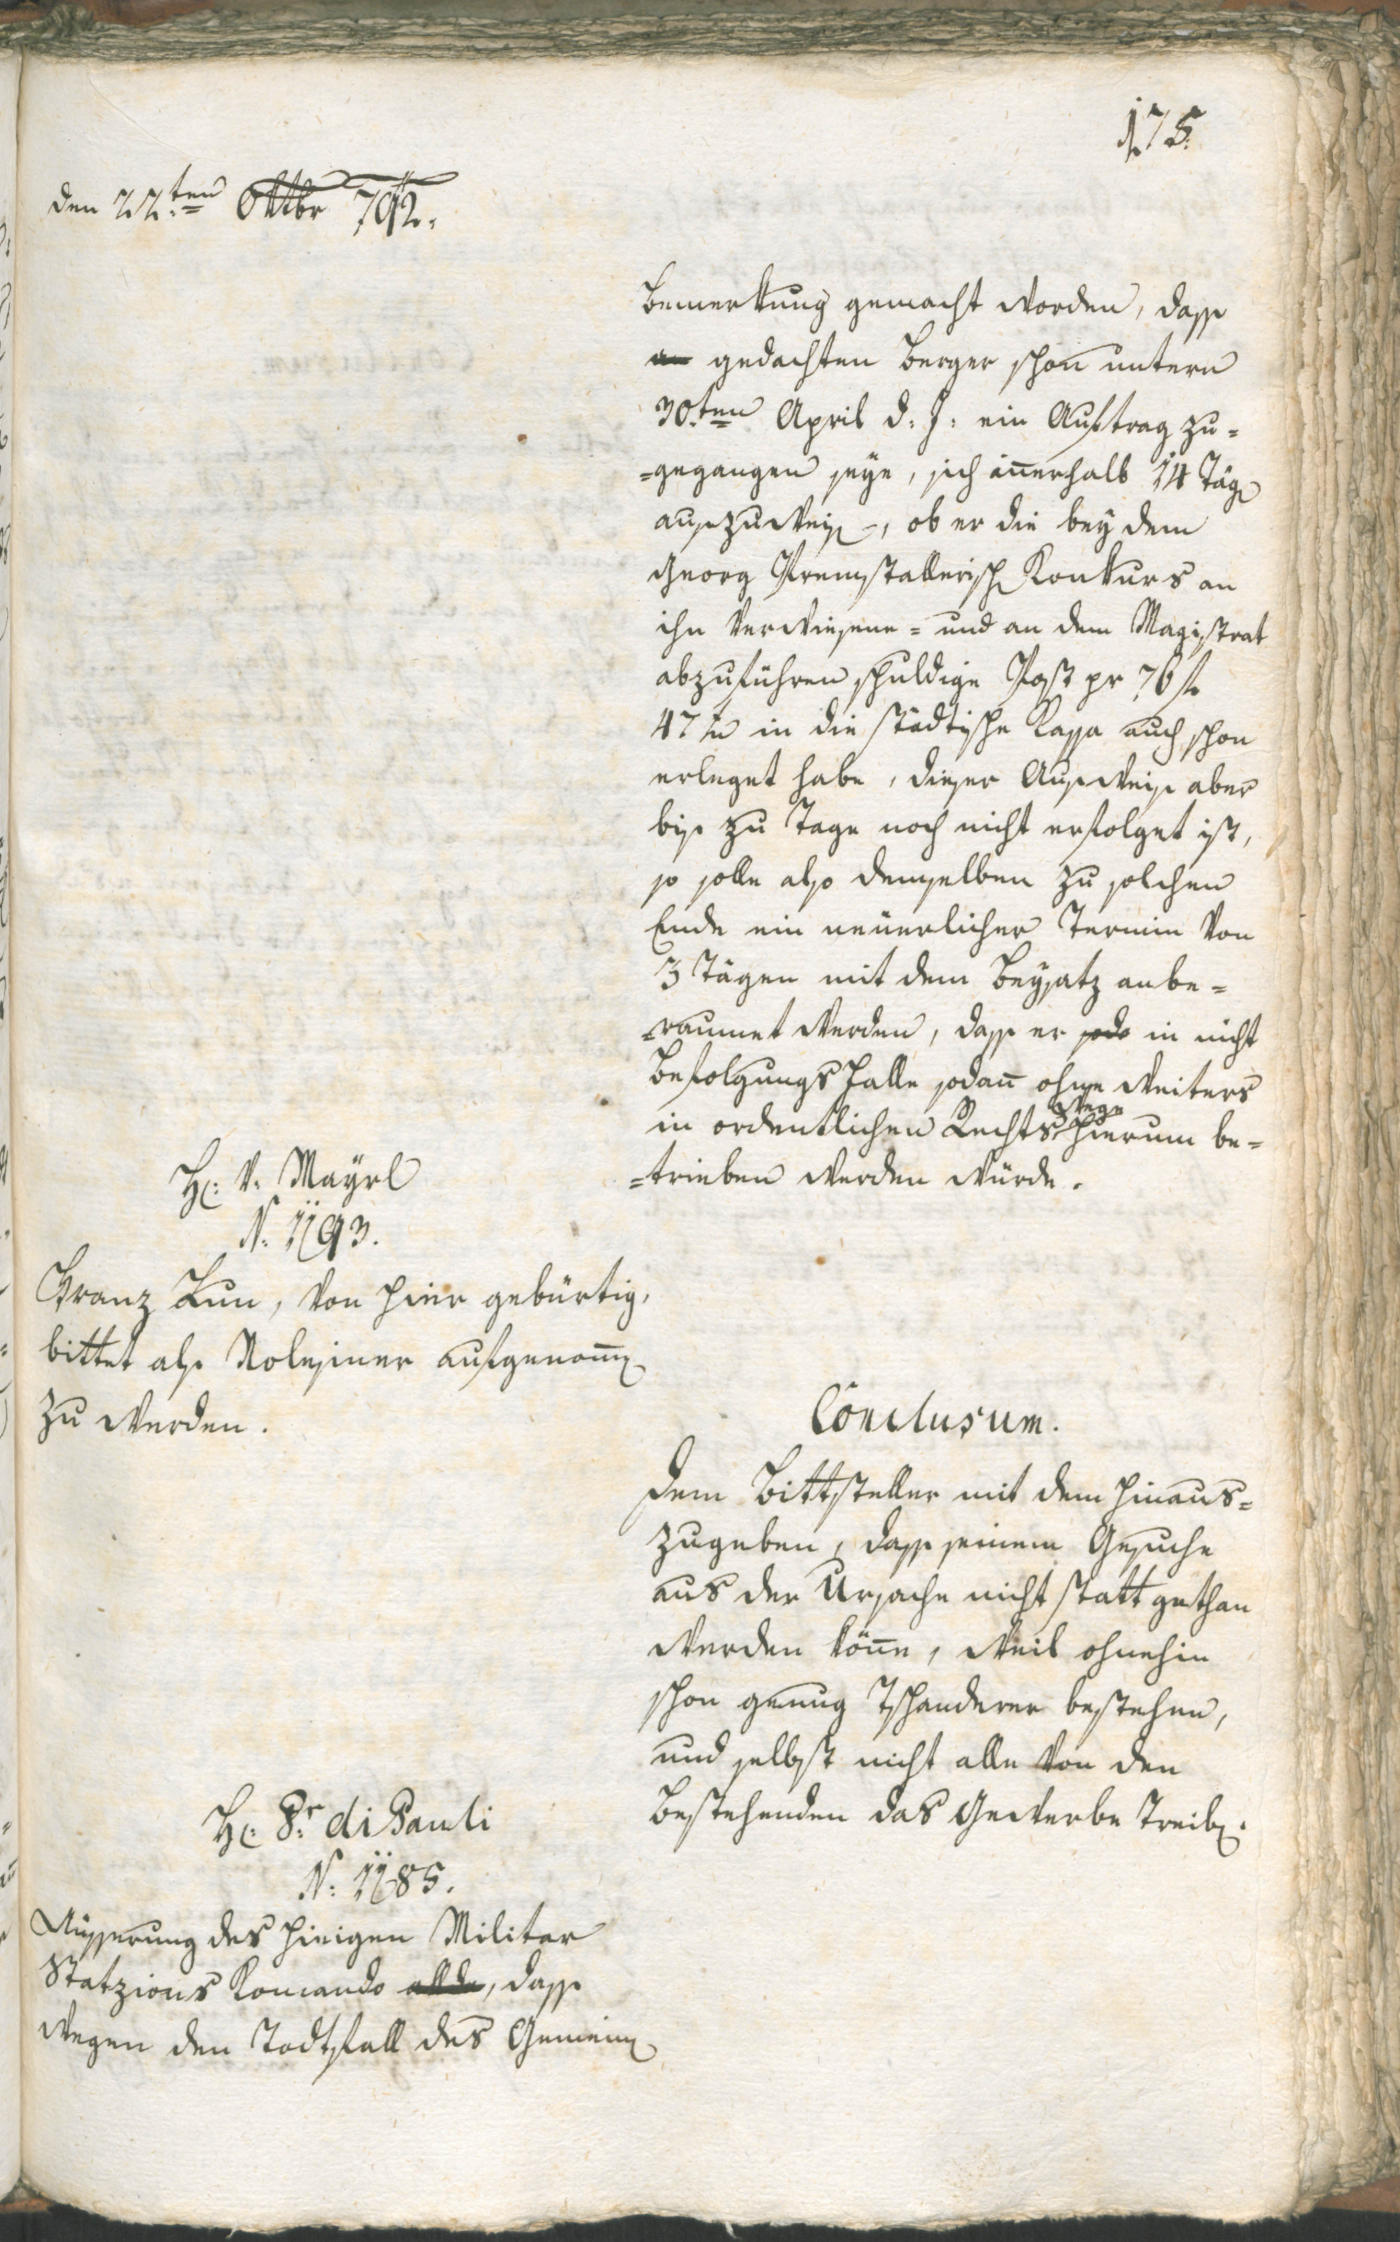 175.
den 22.ten Oktbr 792.
Bemerkung gemacht worden, dass
an gedachten Berger schon untern
30.ten April d: J: ein Auftrag zu=
=gegangen seye, sich innerhalb 14 Täg
auszuweis, ob er die bey dem
Georg Premstallerisch Konkurs an
ihn verwiesene= und an dem Magistrat
abzuführen schuldige Post pr 76 f
47 xr in die städtische Kassa auch schon
erleget habe, dieser Ausweis aber
bis zu Tage noch nicht erfolget ist,
so solle also demselben zu solchen
Ende ein neüerlicher Termin von
3 Tägen mit dem Beysatz anbe=
=raumet werden, dass er sodo in nicht
Befolgungs Falle sodann ohne weiters
in ordentlichen Rechts Wege hierum be=
=trieben werden würde.
H: v. Mayrl
N: 1193.
Franz Kun, von hier gebürtig,
bittet als Nolesiner aufgenom̄
zu werden.
Conclusum.
Dem Bittsteller mit dem hinaus=
zugeben, dass seinem Gesuche
aus der Ursache nicht statt gethan
werden könne, weil ohnehin
schon genug Tschanderer bestehen,
und selbst nicht alle von den
Bestehenden das Gewerbe treib.
H: Dr. di Pauli
N: 1185.
Aüsserung des hiesigen Militar
Statzions Komando allda, dass
wegen den Todtsfall des Gemein